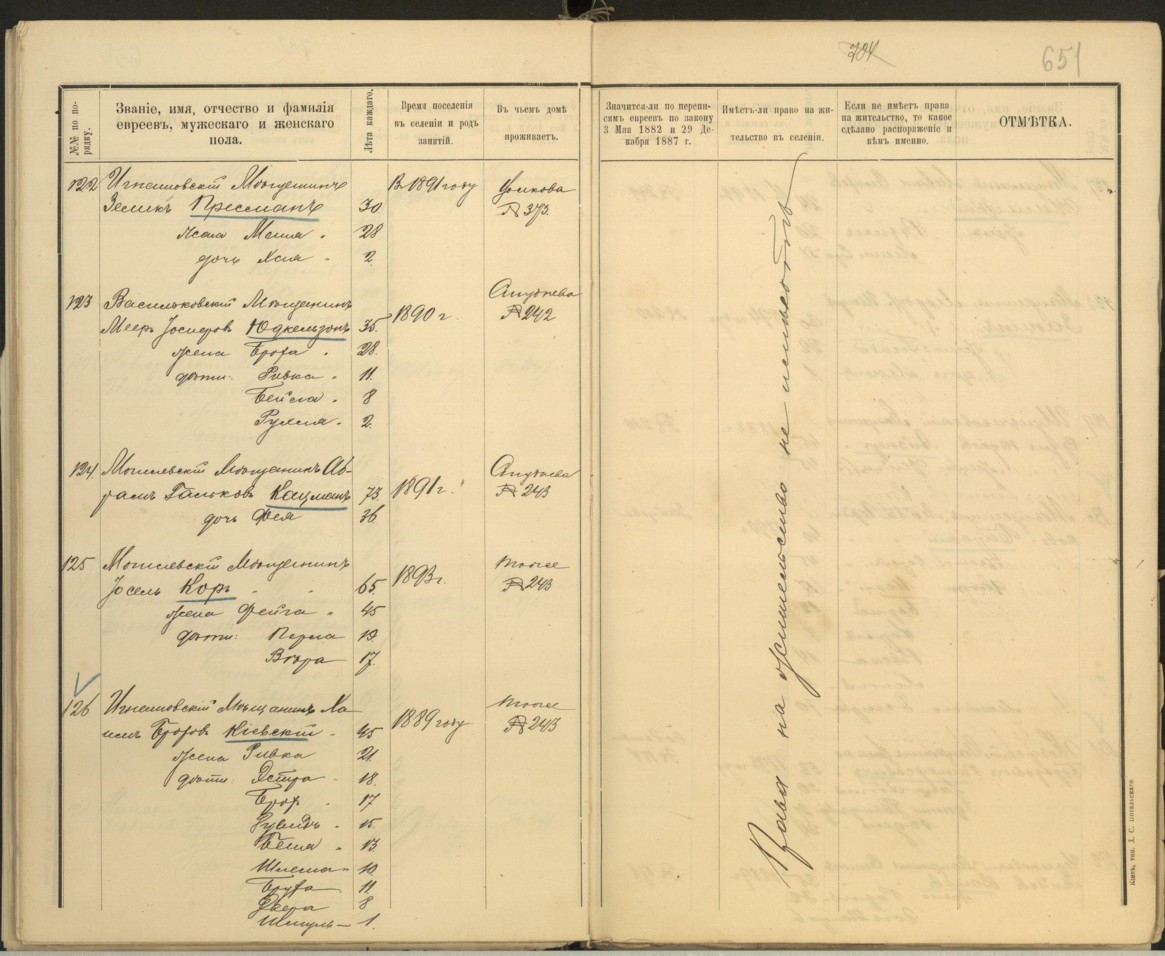 704
651
№№ по по-
рядку.
Званіе, имя, отчество и фамилія
евреевъ, мужескаго и женскаго
пола.
Лѣта каждаго.
Время поселенія
въ селеніи и родъ
занятій.
Въ чьемъ домѣ
проживаетъ.
Значится-ли по перепи-
симъ евреевъ по закону
3 Мая 1882 и 29 Де-
кабря 1887 г.
Имѣетъ-ли право на жи-
тельство въ селеніи.
Если не имѣетъ права
на жительство, то какое
сдѣлано распоряженіе и
кѣмъ именно.
ОТМѢТКА.
122 Игнатовскій Мѣщанинъ В 1891 году
Зеликъ Пресманъ 30 № 373.
жена 28
дочь Хая 2
123 Васильковскій Мѣщанинъ
Мееръ Іосифовъ Юдкельзонъ 35 1890 г. № 242
жена Броха 28
дѣти: Ривка 11
Бейла 8
Рухля 2
124 Могилевскій Мѣщанинъ Аб-
рамъ Кацманъ 73 1891 г. № 243
дочь Фея 36
125 Могилевскій Мѣщанинъ
Іосель Коръ 65 1893 г. № 243
жена Фейга 45
дѣти: Перла 19
17
126 Игнатовскій Мѣщанинъ Ха-
имъ Кіевскій 45 1889 году № 243
жена Ривка 21
дѣти: Эстра 18
17
15
Бейла 13
Шлема 10
Бруха 11
Двера 8
Шмуль 1
Права на жительство не имѣютъ